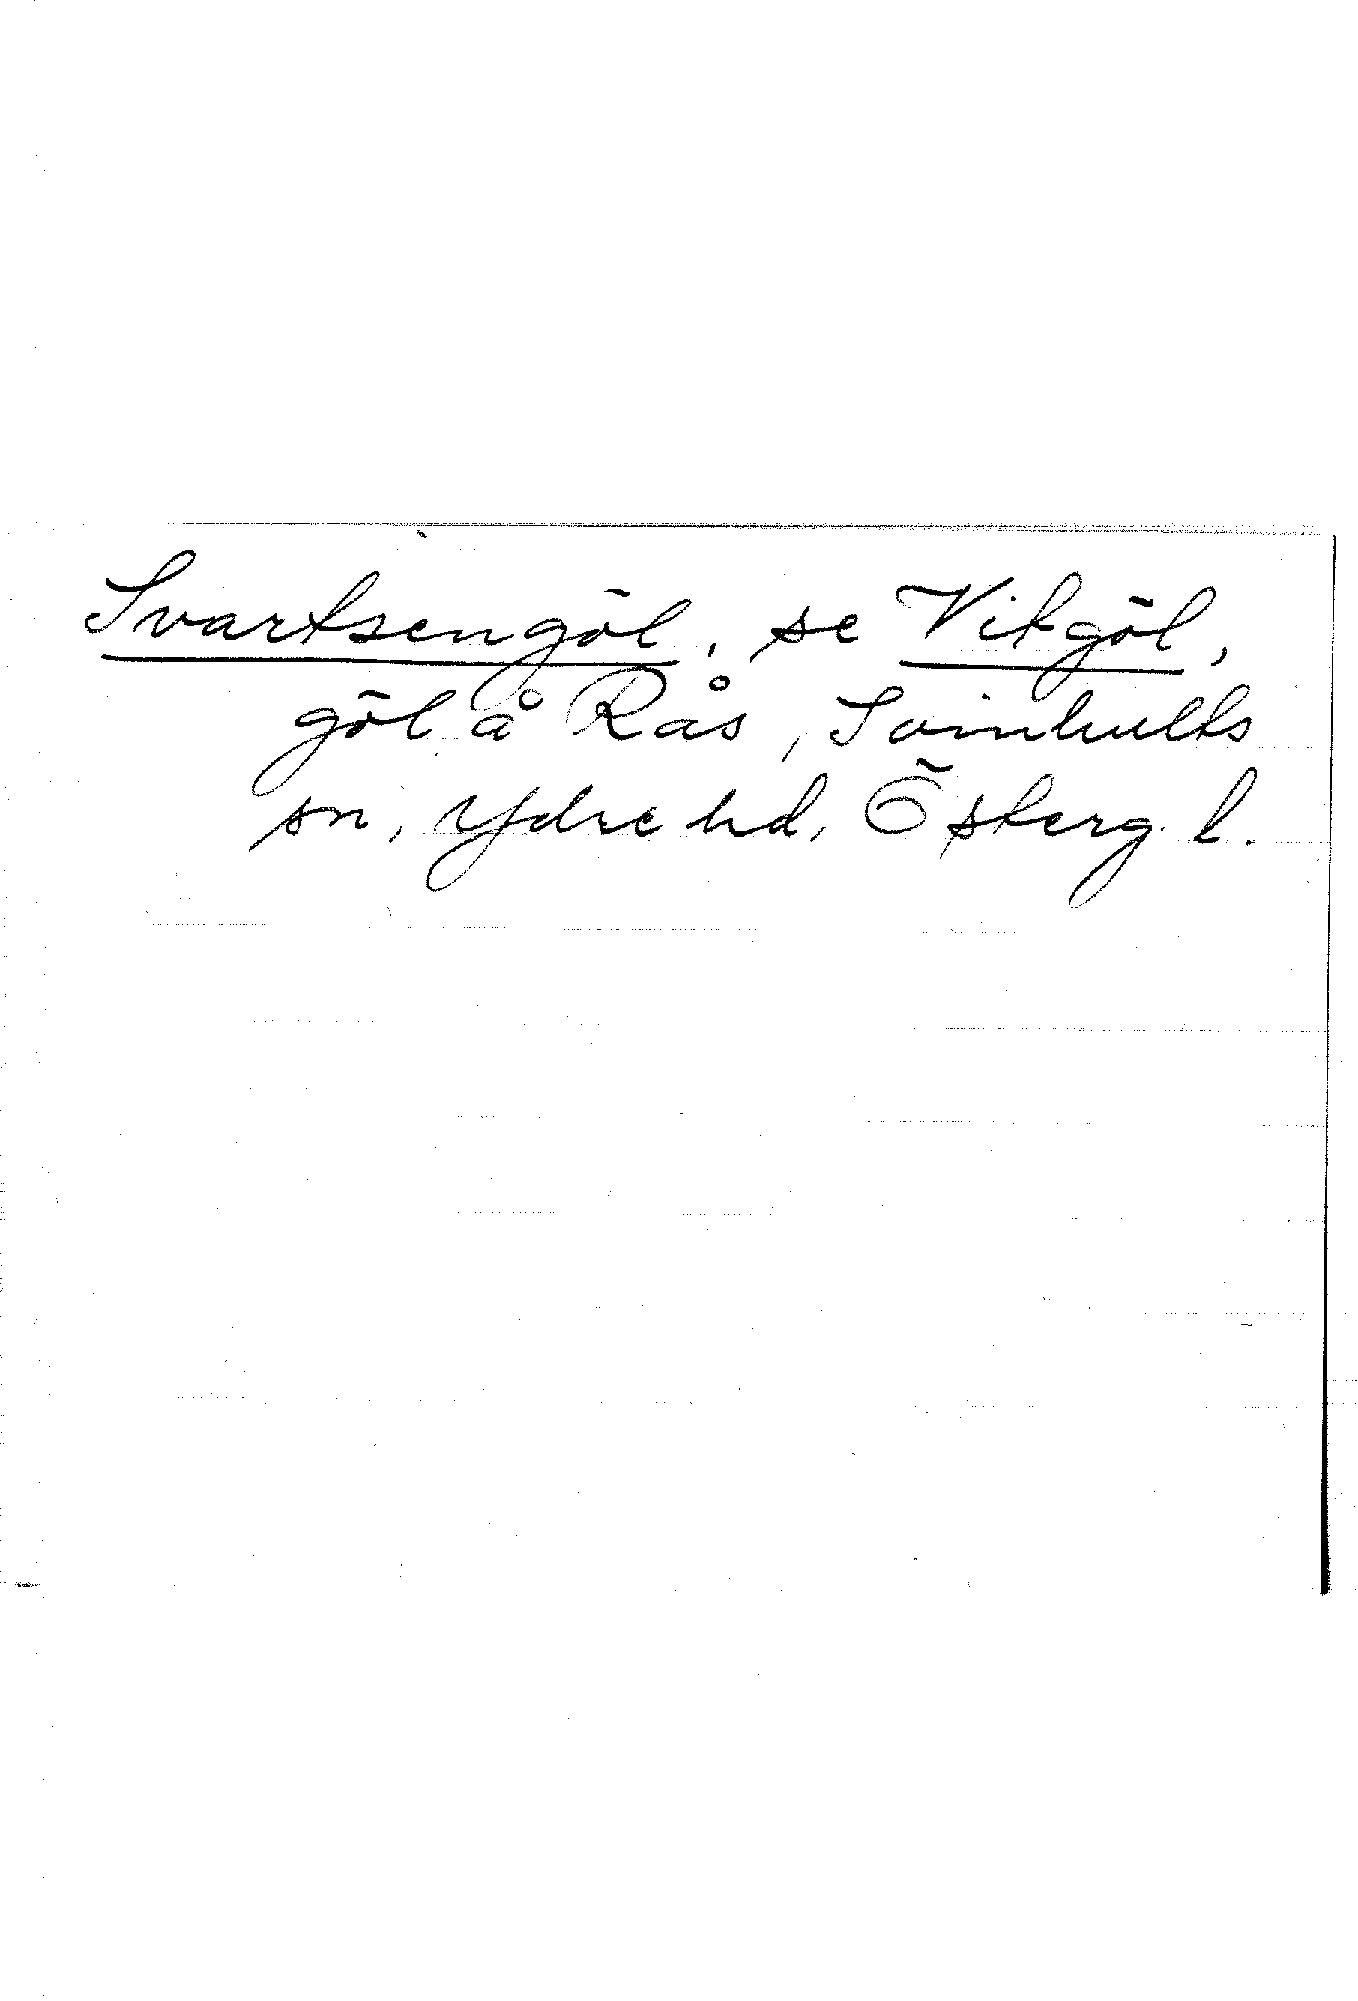 Svartsengöl, se Vitgöl,
göl å Rås, Svinhults
sn, Ydre hd, Österg. l.